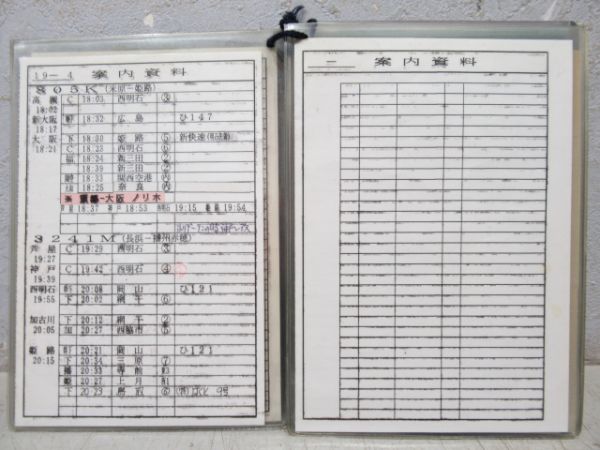 19-4 案内資料
803K (米原-姫路)
高槻 C 18:03 西明石 ③
18:02
新大阪 18:32 広島 ひ147
18:17
大阪 下 18:30 姫路 ⑤ 新快速
18:21 C 18:23 西明石 ⑥
福 18:24 新三田 ②
18:39 新三田 ②
18:32 関西空港 内
18:25 奈良 内
京都-大阪 ノリホ
18:37 神戸 18:53 19:15 姫路 19:54
3241M (長浜-播州赤穂)
芦屋 C 19:29 西明石 ③
19:27
神戸 C 19:42 西明石 ④
19:39
西明石 20:08 岡山 ひ121
19:55 下 20:02 網干 ⑥
加古川 下 20:12 網干 ②
20:05 加 20:27 西脇市 ⑤
姫路 20:21 岡山 ひ121
20:15 下 20:34 三原 ⑦
播 20:33 寺前
姫 20:27 上月
下 20:29 鳥取 ⑥ 9号
案内資料